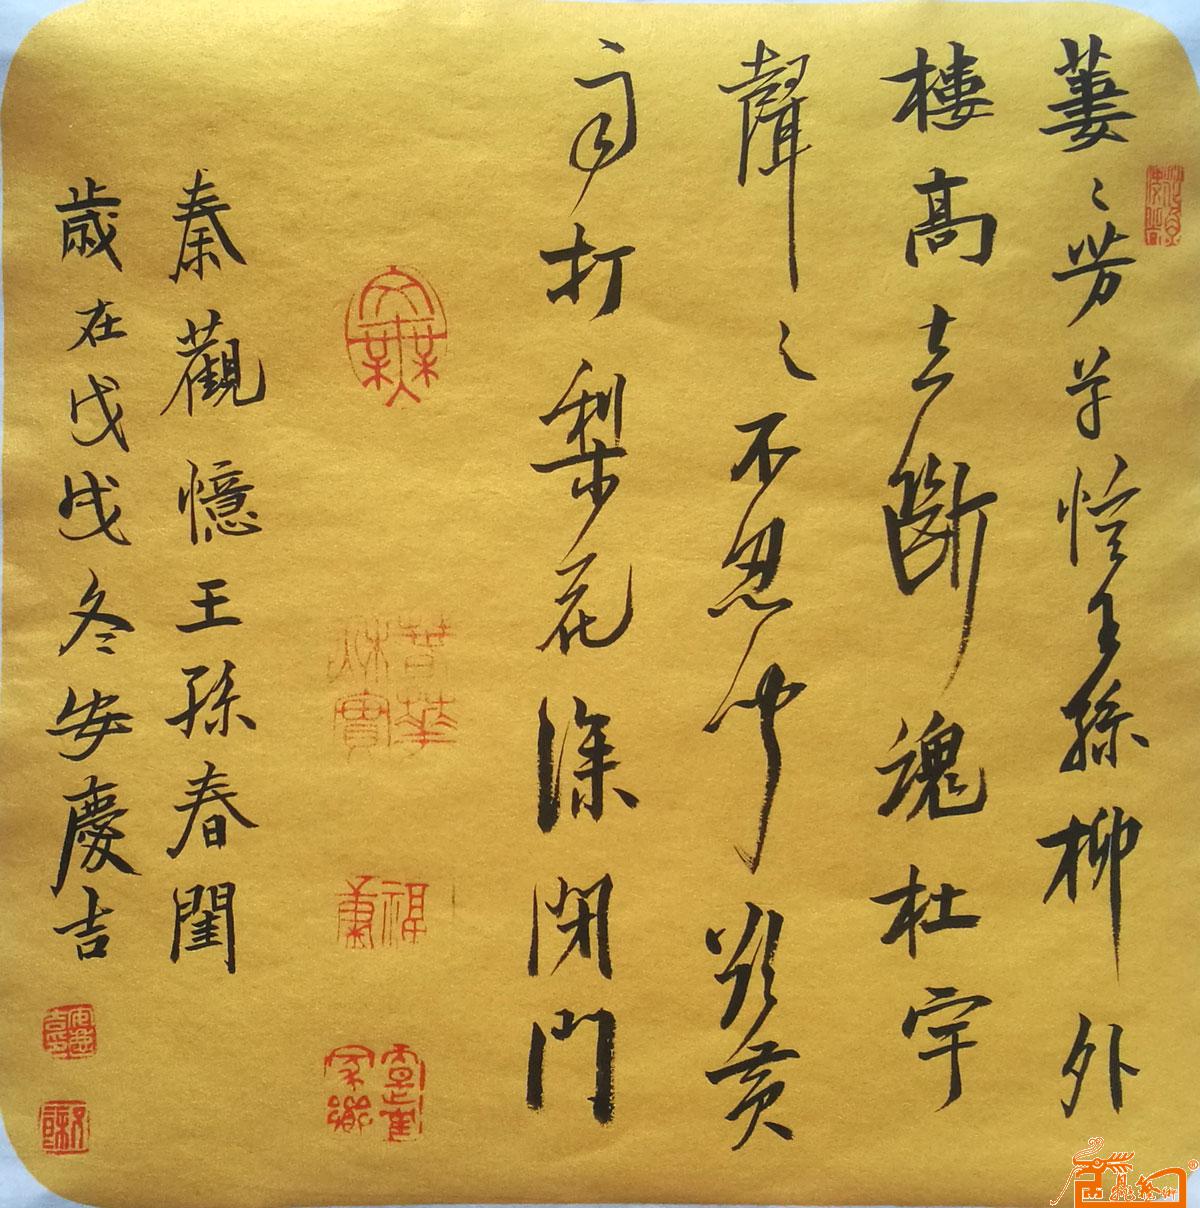 萋〻芳草憶王孫柳外
樓高空斷魂杜宇
聲〻不忍聞欲黃
雨打梨花深閉門
秦觀憶王孫春閨
歲在戊戌冬安慶吉